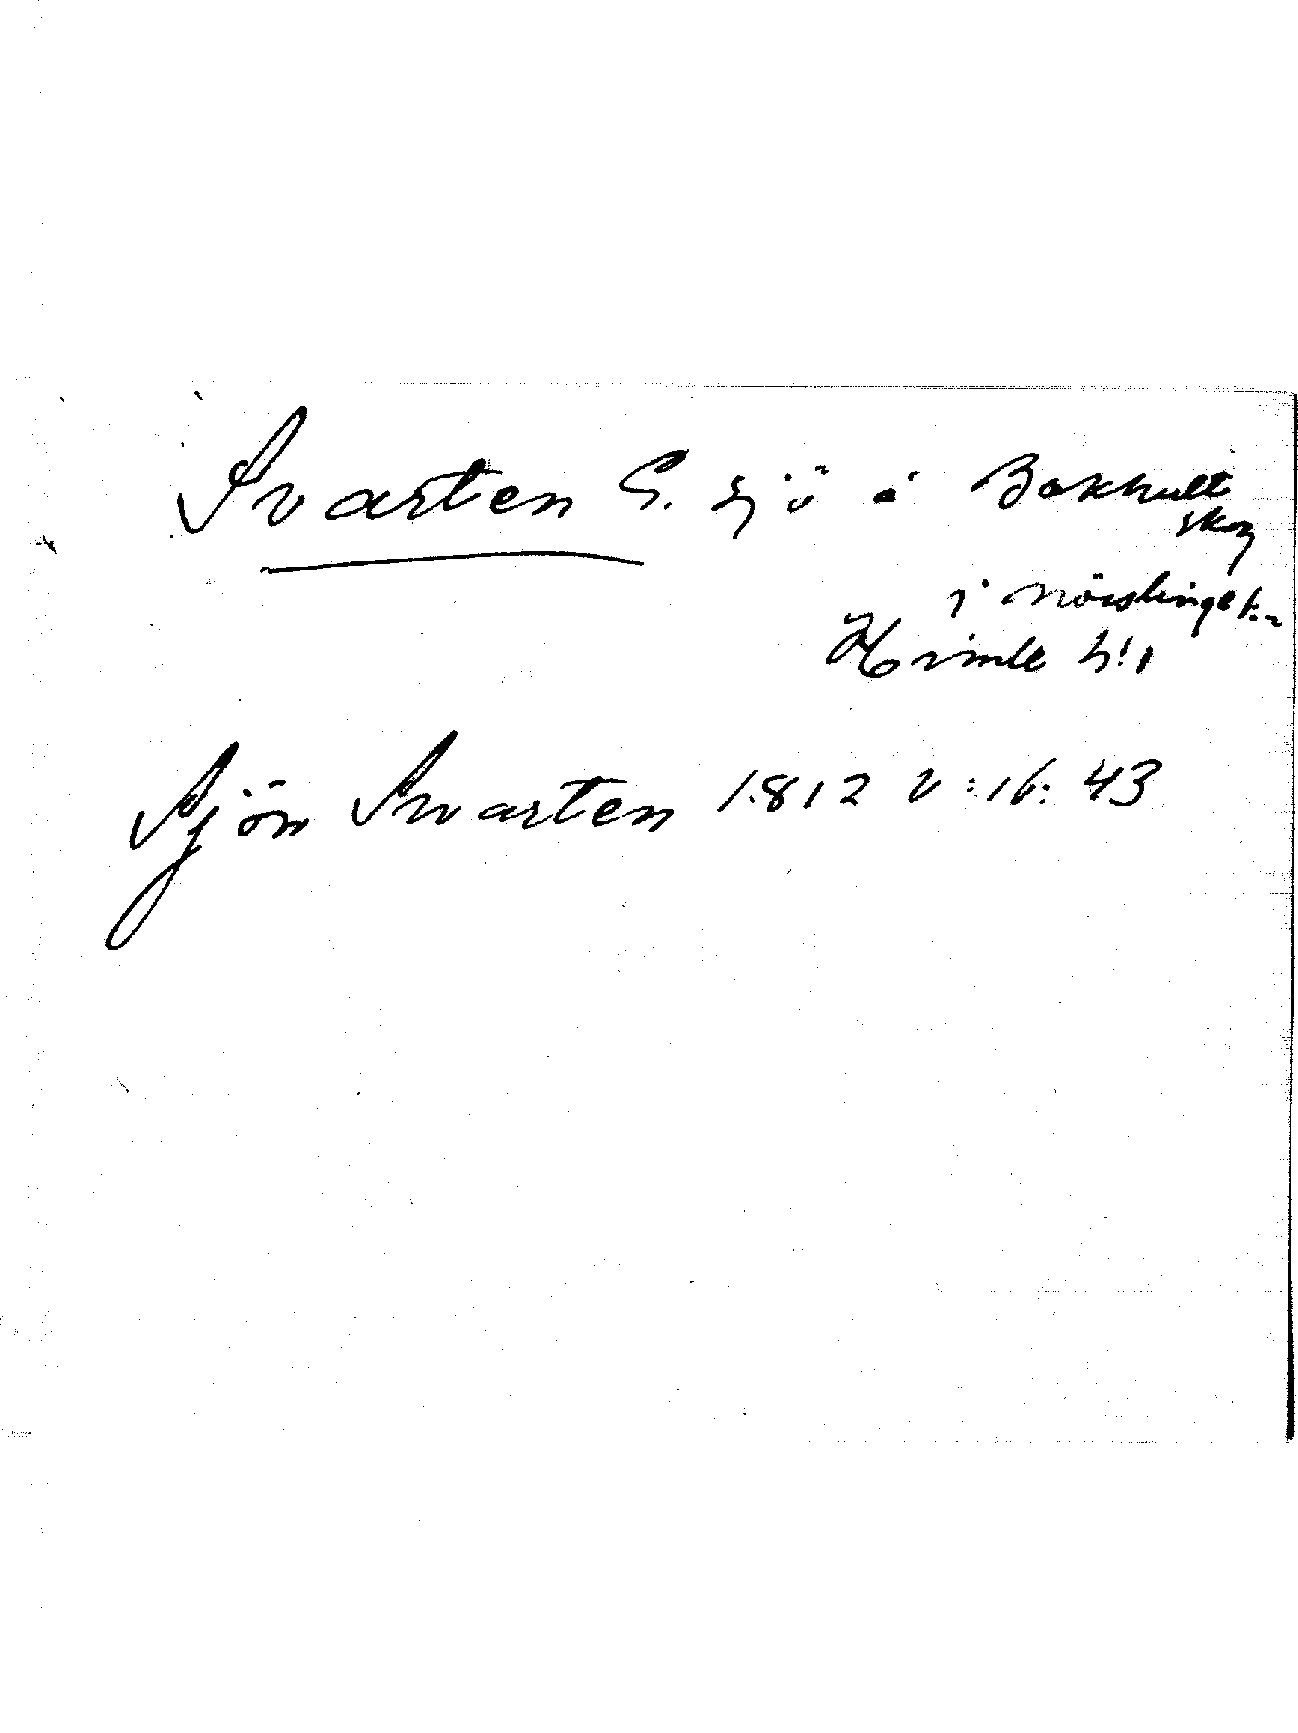 Svarten S. sjö å Bokhult
skog
i Nösslinge sn
Himle h:d
Sjön Svarten 1812 v:16:43